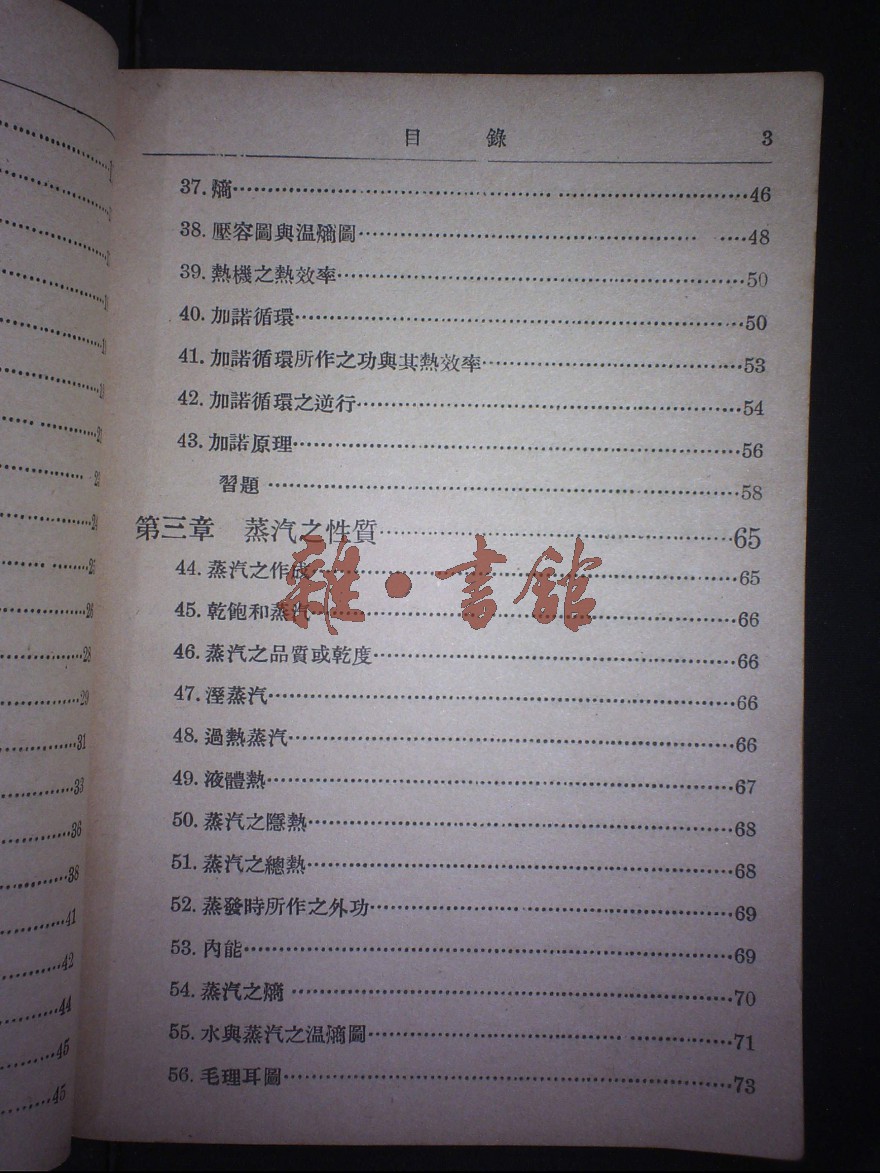 目錄 3
37. 熵 46
38. 壓容圖與温熵圖 48
39. 熱機之熱效率 50
40. 加諾循環 50
41. 加諾循環所作之功與其熱效率 53
42. 加諾循環之逆行 54
43. 加諾原理 56
習題 58
第三章 蒸汽之性質 65
44. 蒸汽之作成 65
45. 乾飽和蒸汽 66
46. 蒸汽之品質或乾度 66
47. 溼蒸汽 66
48. 過熱蒸汽 66
49. 液體熱 67
50. 蒸汽之隱熱 68
51. 蒸汽之總熱 68
52. 蒸發時所作之外功 69
53. 內能 69
54. 蒸汽之熵 70
55. 水與蒸汽之温熵圖 71
56. 毛理耳圖 73
雜·書館
21
24
25
26
28
29
31
33
36
38
41
42
44
45
45